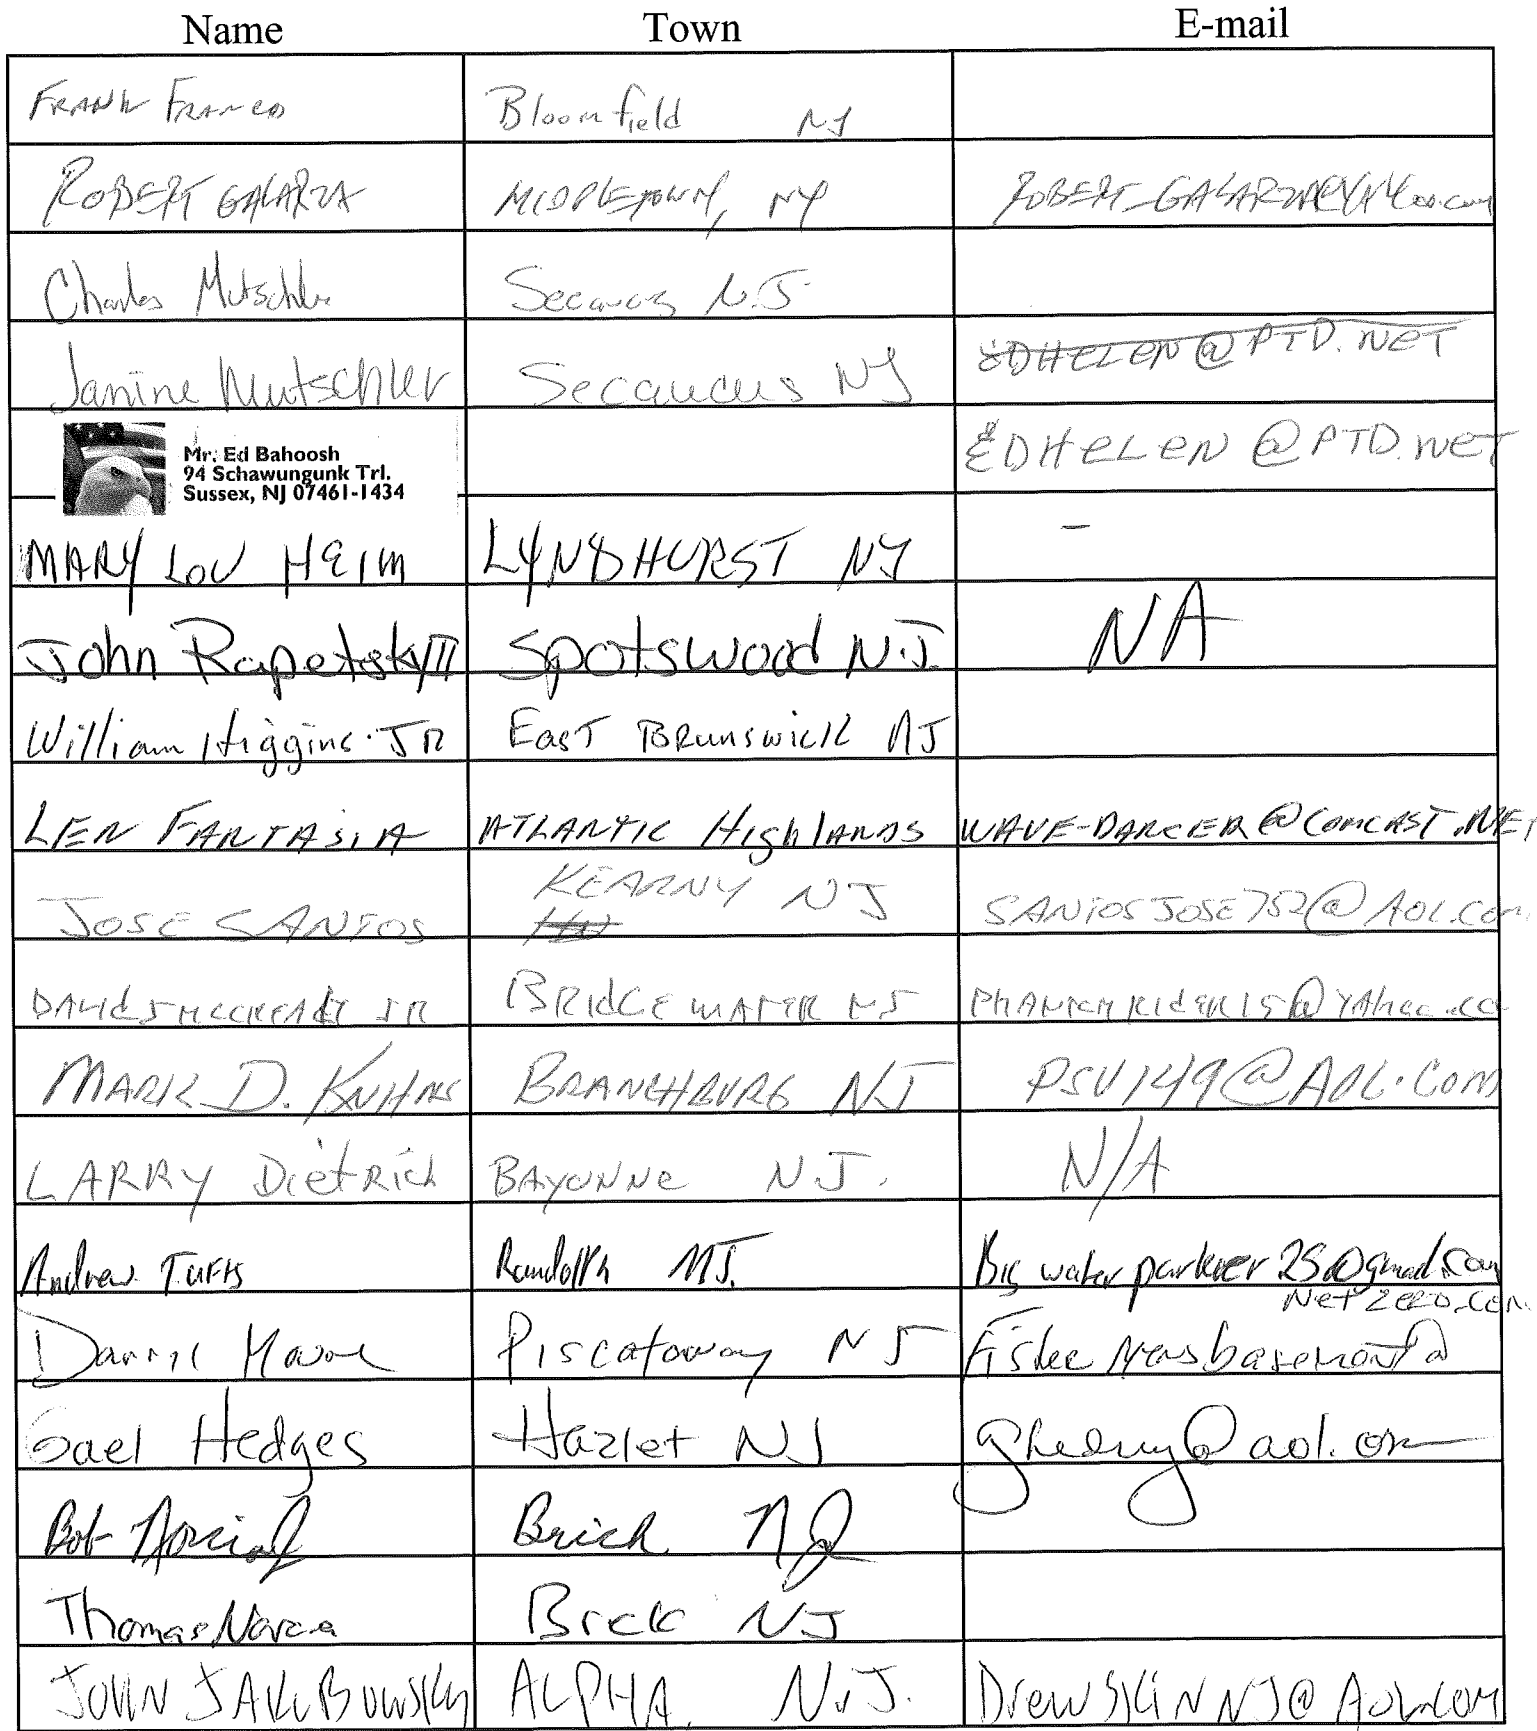 Name Town E-mail
FRANK FRANCO Bloomfield NJ
ROBERT GALARZA MIDDLETOWN, NY ROBERT_GALARZA@YAHoo.com
Charles Mutschler Secaucus N.J.
Janine Mutschler Secaucus NJ EDHELEN@PTD.NET
Mr. Ed Bahoosh
94 Schawungunk Trl.
Sussex, NJ 07461-1434
EDHELEN@PTD.NET
MARY LOU HEIM LYNDHURST NJ -
John Rapetsky III Spotswood N.J. NA
William Higgins JR EAST BRunswick NJ
LEN FANTASIA ATLANTIC HighlANDS WAVE-DANCER@COMCAST.NET
JOSE SANTOS KEARNY NJ SANTOSJOSE752@AOL.COM
DAVID J MCCREADY JR BRIDGEWATER NJ PHANTOMRIDER15@YAhoo.co
MARK D. KUHNS BRANCHBURG NJ PSU149@AOL.COM
LARRY DietRich BAYONNe N.J. N/A
Andrew TUFTS Randolph NJ. Big water parker 25@gmail.com
Net ZERO.COM
Moore Piscataway NJ basement@
Gael Hedges Hazlet NJ @aol.com
Bob Brick NJ
Thomas Brick NJ
JOHN JAKUBOWSKI ALPHA N.J. DrewSKiNNJ@AOL.COM